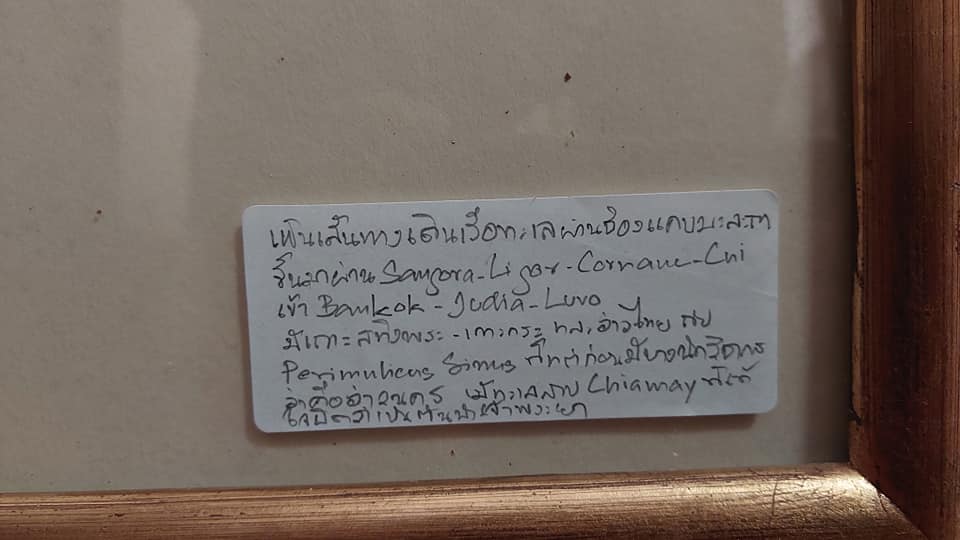 เห็นเส้นทางเดินเรือทะเลผ่านช่องแคบมะละกา
ขึ้นมาผ่าน Sangora - Ligor - Cornam - Cui
เข้า Bankok - Judia - Luvo
มีเกาะสทิงพระ - เกาะกระ ทะเลอ่าวไทย
Perimulicus Sinus ก่อนมีบางนักวิชาการ
ว่าคือ มีทะเลสาบ Chiamay
เป็นต้นน้ำเจ้าพระยา